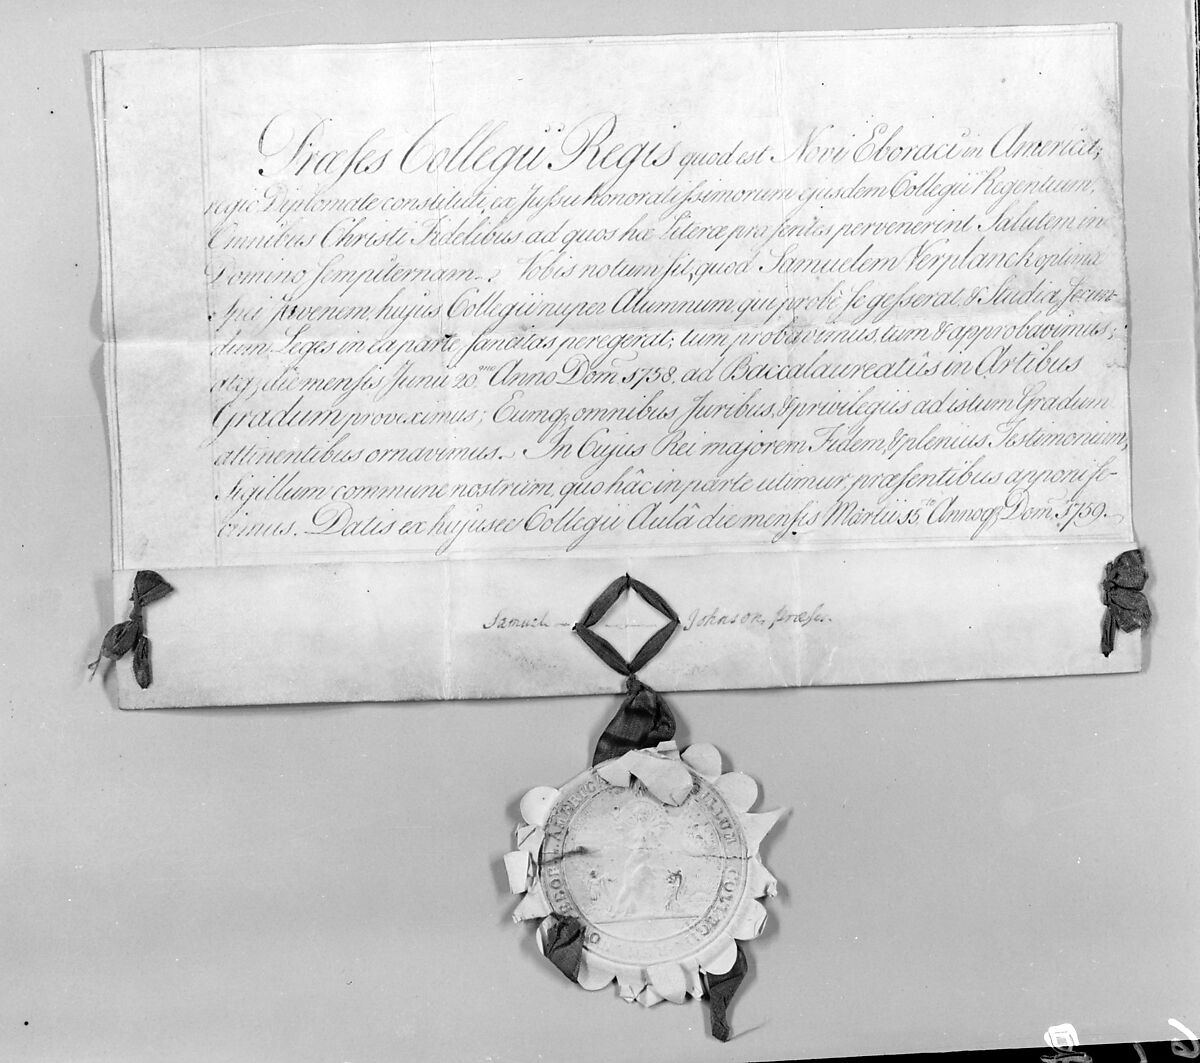 Præses Collegii Regis quod est Novi Eboraci in America;
regio Diplomate constituti, ex Jussu honoratissimorum ejusdem Collegii Regentium,
Omnibus Christi Fidelibus ad quos hæ Literæ præsentes pervenerint Salutem in
Domino sempiternam. Vobis notum sit, quod Samuelem Verplanck optimæ
Spei Juvenem, hujus Collegii nuper Alumnum, qui probè se gesserat, & Studia secun-
dum Leges in ea parte sancitas peregerat; tum probavimus, tum & approbavimus;
atq; die mensis Junii 20mo Anno Dom. 1758, ad Baccalaureatûs in Artibus
Gradum proveximus; Eumq; omnibus Juribus, & privilegiis ad istum Gradum
attinentibus ornavimus. In Cujus Rei majorem Fidem, & plenius Testimonium,
Sigillum commune nostrum, quo hâc in parte utimur, præsentibus apponi fe-
cimus. Datis ex hujusce Collegii Aulâ die mensis Martii 15to Annoq; Dom. 1759.
Samuel Johnson, Præses.
ILLUM COLLEGII
EBOR. AMERICA